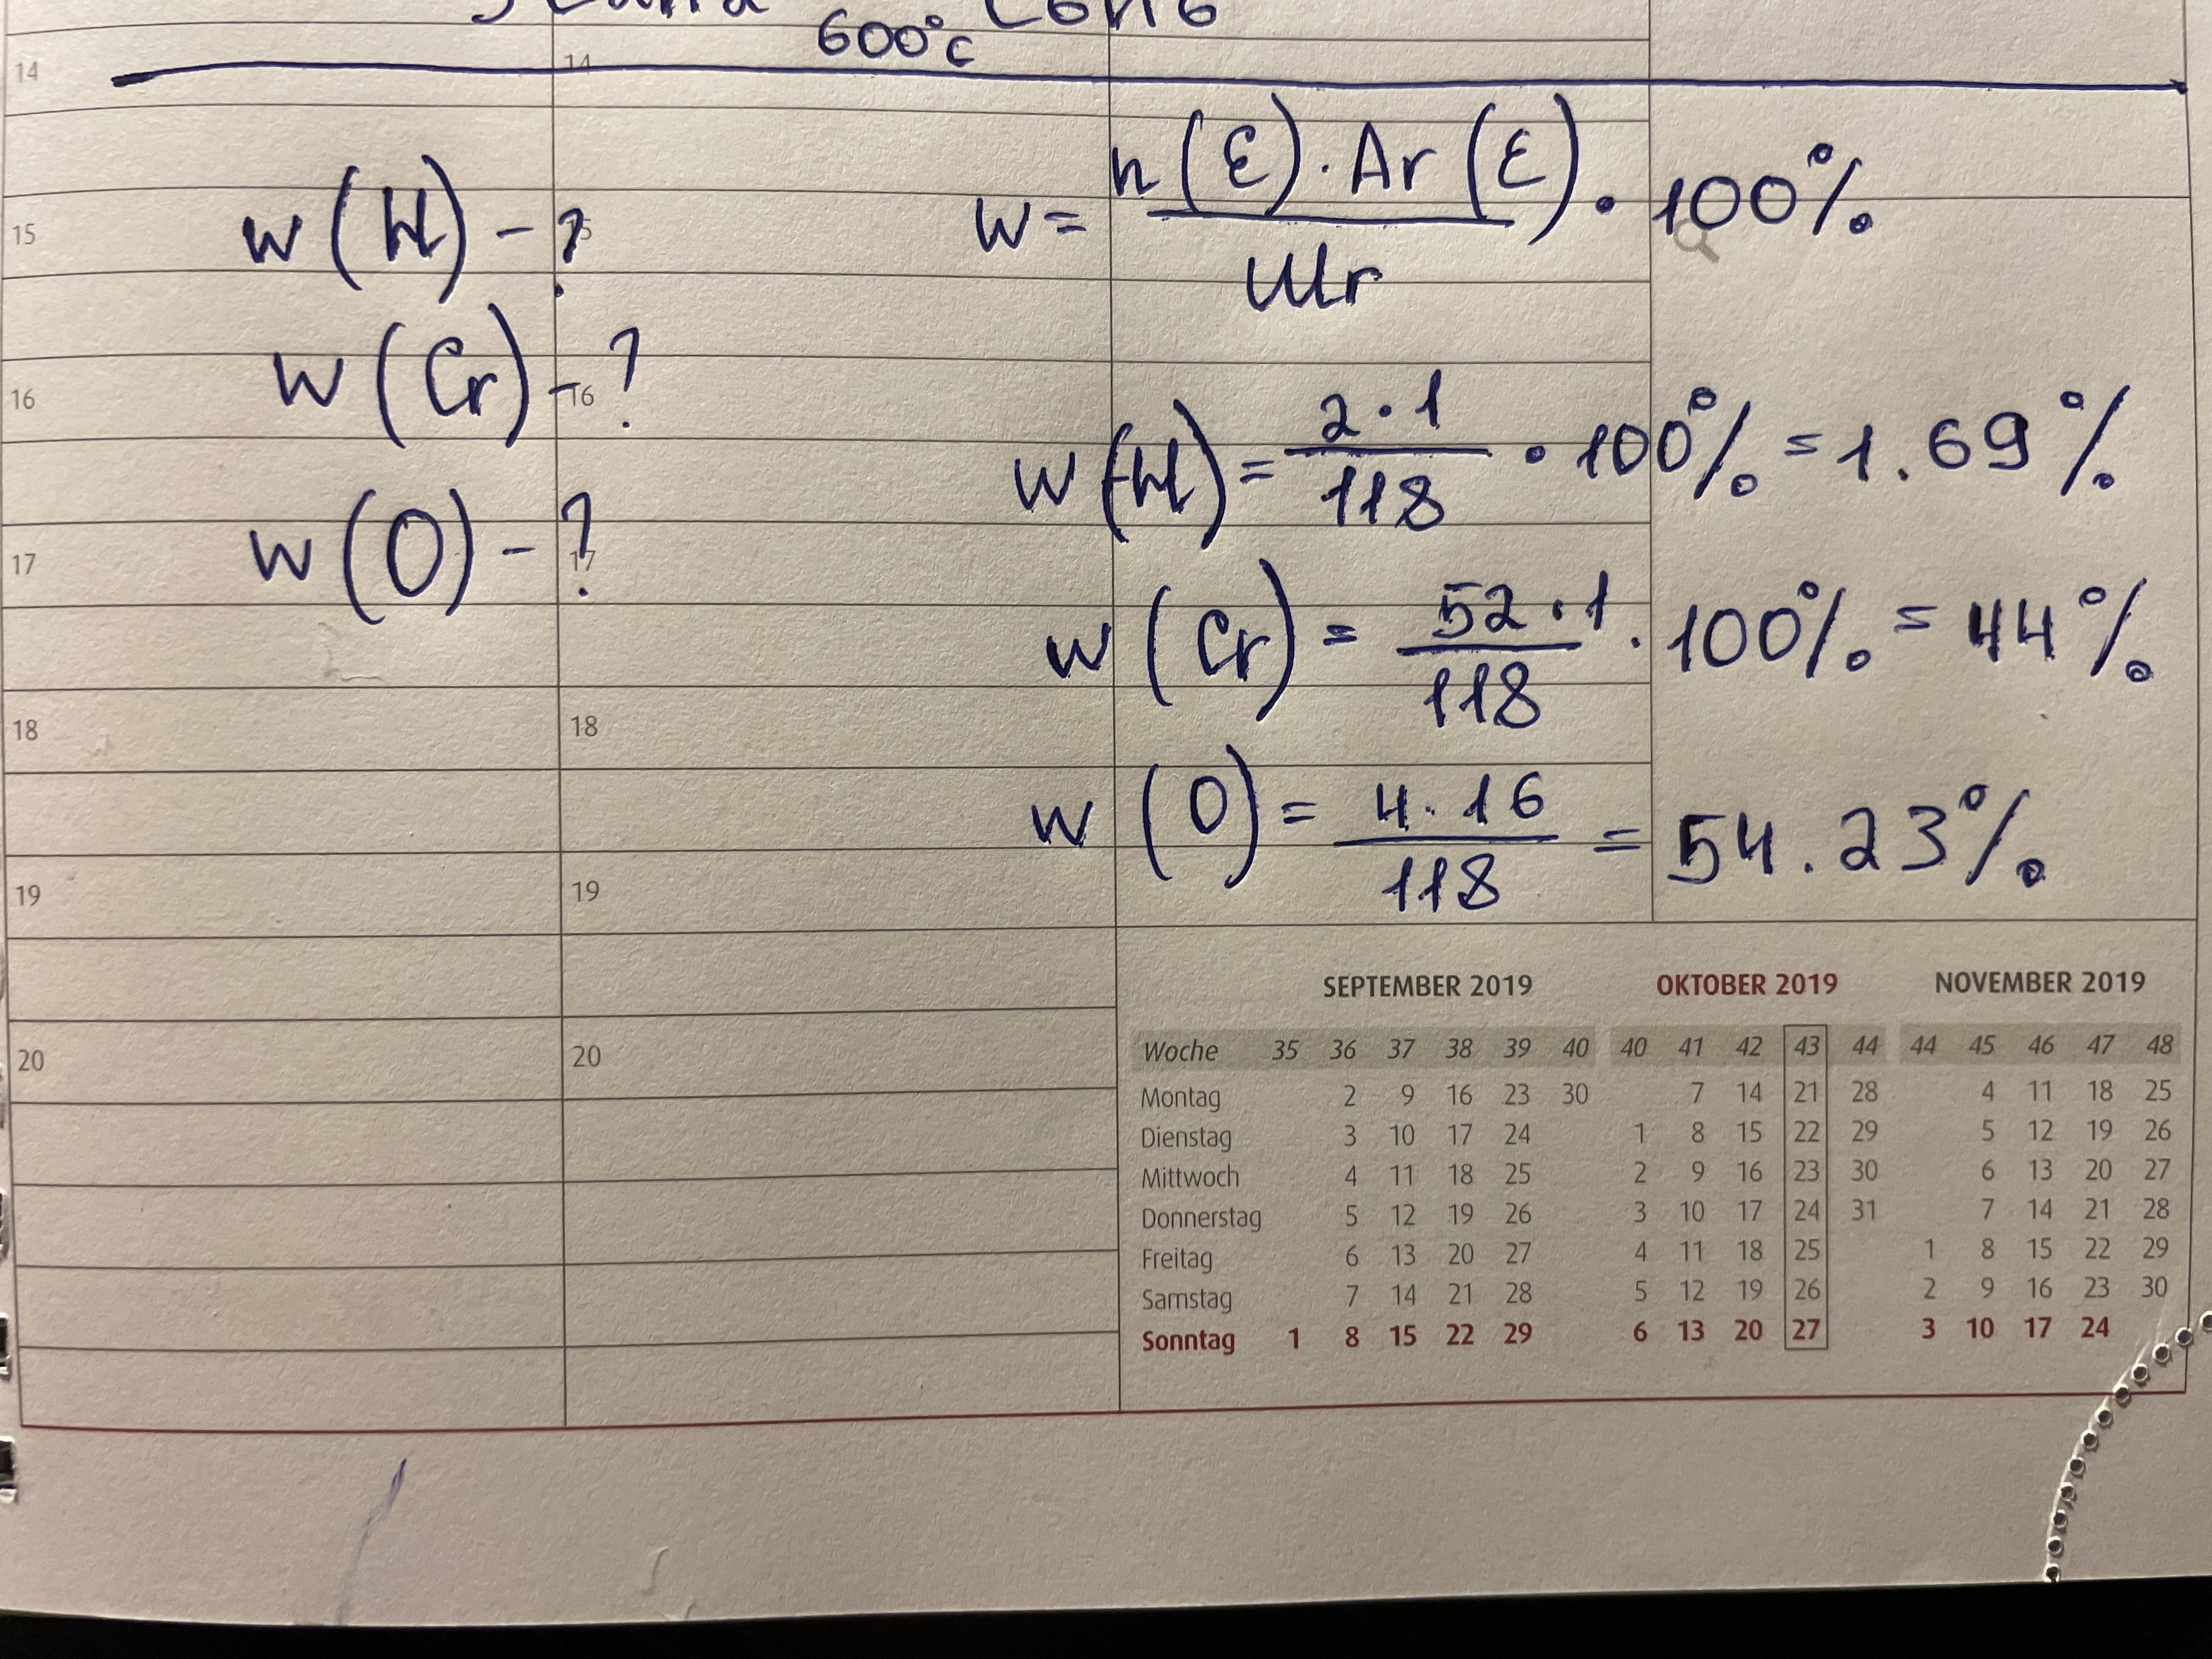 600°C
14 14
w = n(E) · Ar(E) / Mr · 100%
15 w(H) - ?
16 w(Cr) - ? 16
w(H) = 2 · 1 / 118 · 100% = 1.69%
17 w(O) - ? 17
w(Cr) = 52 · 1 / 118 · 100% = 44%
18 18
w(O) = 4 · 16 / 118 = 54.23%
19 19
20 20
SEPTEMBER 2019 OKTOBER 2019 NOVEMBER 2019
Woche 35 36 37 38 39 40 40 41 42 43 44 44 45 46 47 48
Montag 2 9 16 23 30 7 14 21 28 4 11 18 25
Dienstag 3 10 17 24 1 8 15 22 29 5 12 19 26
Mittwoch 4 11 18 25 2 9 16 23 30 6 13 20 27
Donnerstag 5 12 19 26 3 10 17 24 31 7 14 21 28
Freitag 6 13 20 27 4 11 18 25 1 8 15 22 29
Samstag 7 14 21 28 5 12 19 26 2 9 16 23 30
Sonntag 1 8 15 22 29 6 13 20 27 3 10 17 24